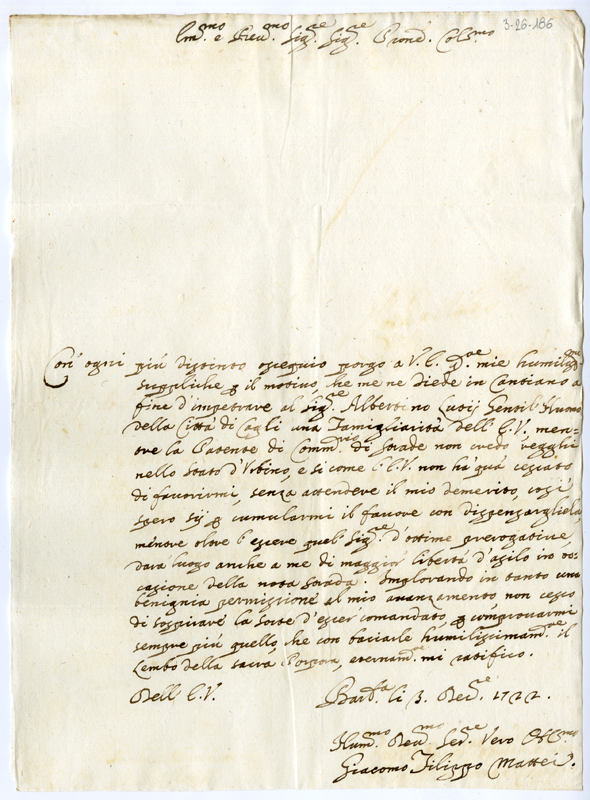 3-26-186
Em.mo e Reu.mo Sig.re Sig.re Pròne. Col.mo
Con ogni più distinto osseguio porgo a V. E. R.me mie humiliss.me
suppliche p il motivo, che me ne diede in Cantiano a
fine d'impetrare al Sig.re Albertino Lutij Gentil'Huomo
della Città di Cagli una Famigliarità dell'E.V. men-
tre la Patente di Comm.rio di Strade non credo vegghi
nello Stato d'Urbino, e si come l'E.V. non hà quà cessato
di favorirmi, senza attendere il mio demerito, così
spero sij p cumularmi il favore con dispensargliela,
mentre oltre l'essere quel Sig.re d'ottime prerogative
darà luogo anche a me di maggior libertà d'asilo in oc-
casione della nota strada. Implorando in tanto una
benignia permissione al mio avanzamento non cesso
di sospirare la sorte d'esser comandato, p comprovarmi
sempre più quello, che con baciarle humilissimam.te il
Lembo della sacra Porpora, eternam.te mi ratifico.
Dell'E.V.
Barb.ra li 3. Dec.re 1722.
Hum.mo Deu.mo Ser.re Vero Obl.mo
Giacomo Filippo Mattei.